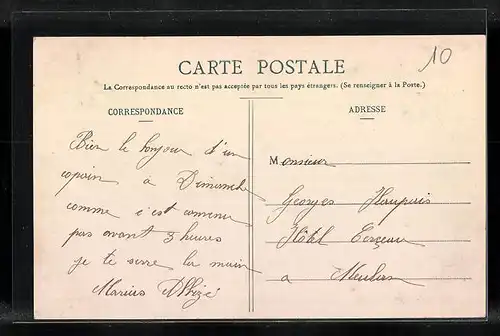 10
CARTE POSTALE
La Correspondance au recto n'est pas acceptée par tous les pays étrangers. (Se renseigner à la Poste.)
CORRESPONDANCE
ADRESSE
Bien le bonjour d'un
copain à Dimanche
comme c'est convenu
pas avant 3 heures
je te serre la main
Marius
Monsieur
Georges
Hôtel
à Meulan